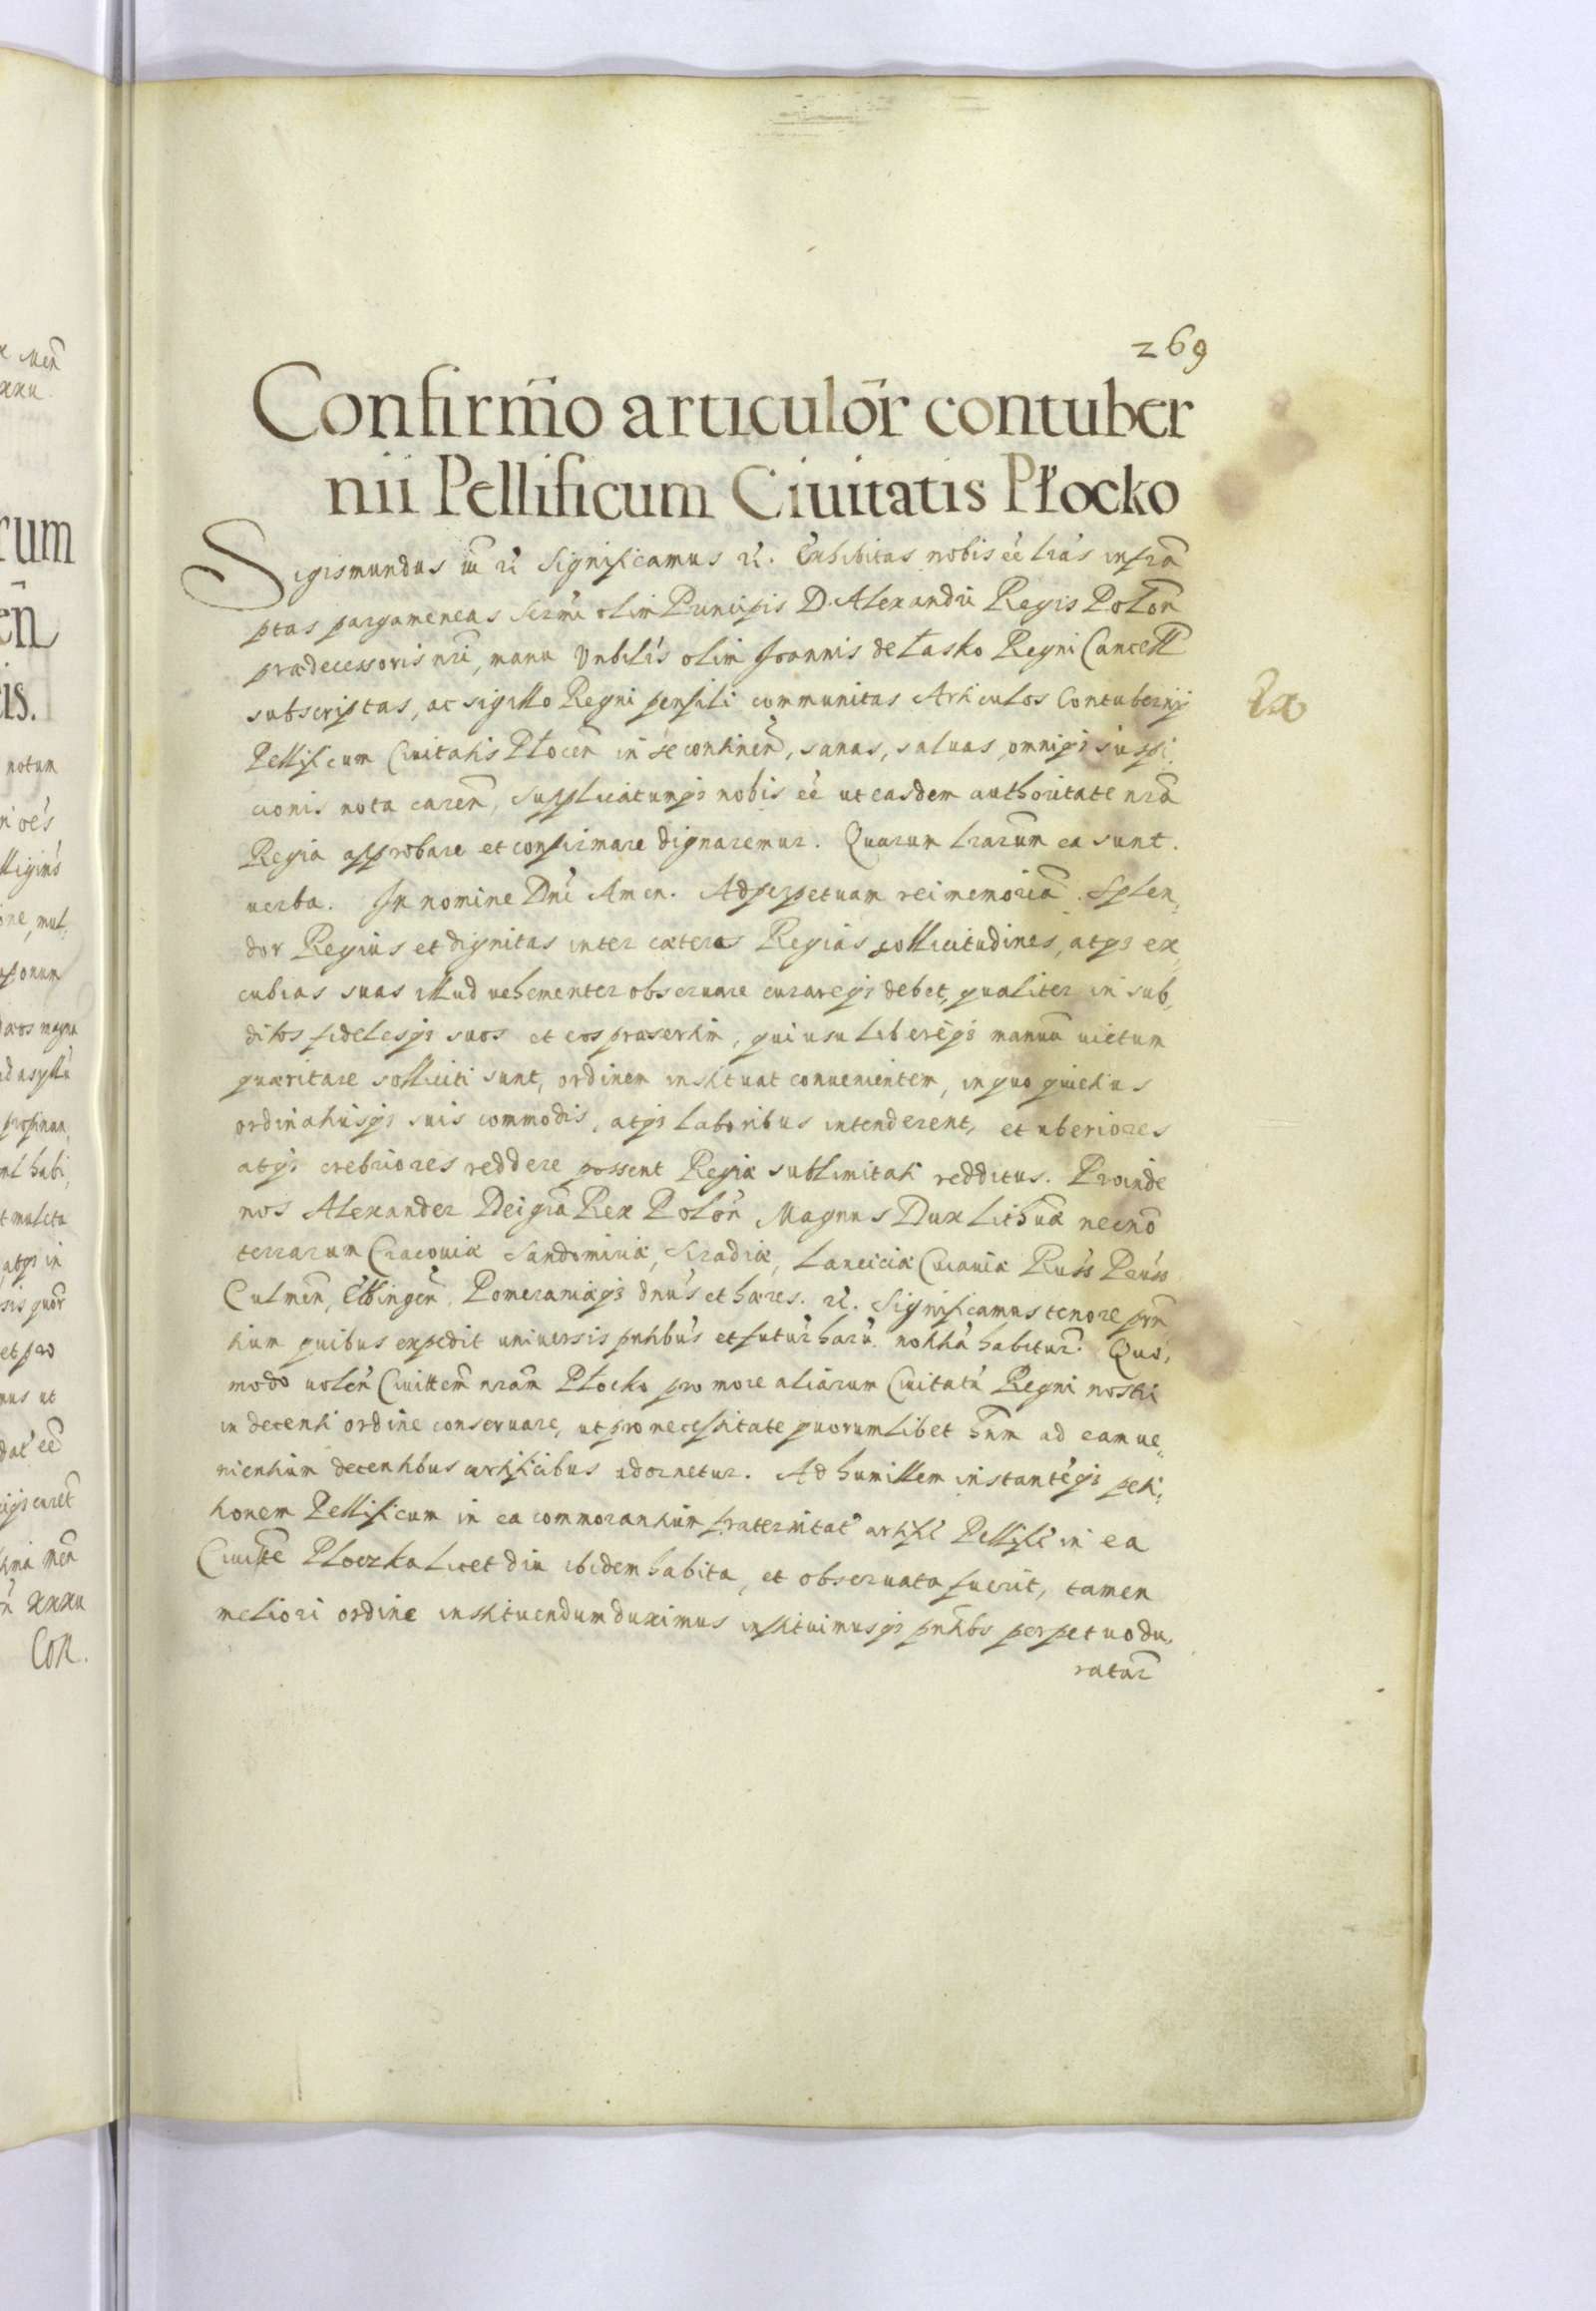 269
Confirm̃o articulõr contuber
nii Pellificum Ciuitatis Płocko
Sigismundus iii rc Significamus rc. Exhibitas nobis eẽ lrãs infrã
ptas pargameneas Sermi olim Principis D. Alexandri Regis Polõn
prædecessoris nri, manu Vnbilis olim Joannis de Łasko Regni Cancell
subscriptas, ac sigillo Regni pensili communitas Articulos Contubernij
Pellificum Ciuitatis Plocen in se continen, sanas, saluas, omniqȝ suspi,
cionis nota caren, Supplicatumqȝ nobis eẽ ut easdem authoritate nrã
Regia approbare et confirmare dignaremur. Quarum lrarum ea sunt.
uerba. In nomine Dni Amen. Ad perpetuam rei memoriã. Splen,
dor Regius et dignitas inter cæteras Regias sollicitudines, atqȝ ex,
cubias suas illud uehementer obseruare curareqȝ debet, qualiter in sub,
ditos fidelesqȝ suos et eos præsertim, qui usu liberẽqȝ manuũ uictum
quæritare solliciti sunt, ordinem instituat conuenientem, in quo quietius
ordinatiusqȝ suis commodis, atqȝ laboribus intenderent, et uberiores
atqȝ crebriores reddere possent Regiæ sublimitati redditus. Proinde
nos Alexander Dei grã Rex Polõn Magnus Dux Lithuã necnõ
terrarum Cracouiæ Sandomiriæ, Siradiæ, Lanciciæ Cuiauiæ Russ Pruss
Culmen, Elbingen, Pomeraniæqȝ dnus et hæres. rc. Significamus tenore prñ
tium quibus expedit uniuersis pntibus et futur harũ notitiã habitur. Quo,
modo uolẽn Ciuittem nrãm Plocko pro more aliarum Ciuitatũ Regni nostri
in decenti ordine conseruare, ut pro necessitate quorumlibet hñm ad eam ue,
nientium decentibus artificibus adornetur. Ad humillem instantẽqȝ peti,
tionem Pellificum in ea commorantium fraternitat artifi Pellifi in ea
Ciuitte Ploczka licet diu ibidem habita, et obseruata fuerit, tamen
meliori ordine instituendum duximus instituimusqȝ pntibs perpetuo du,
ratur